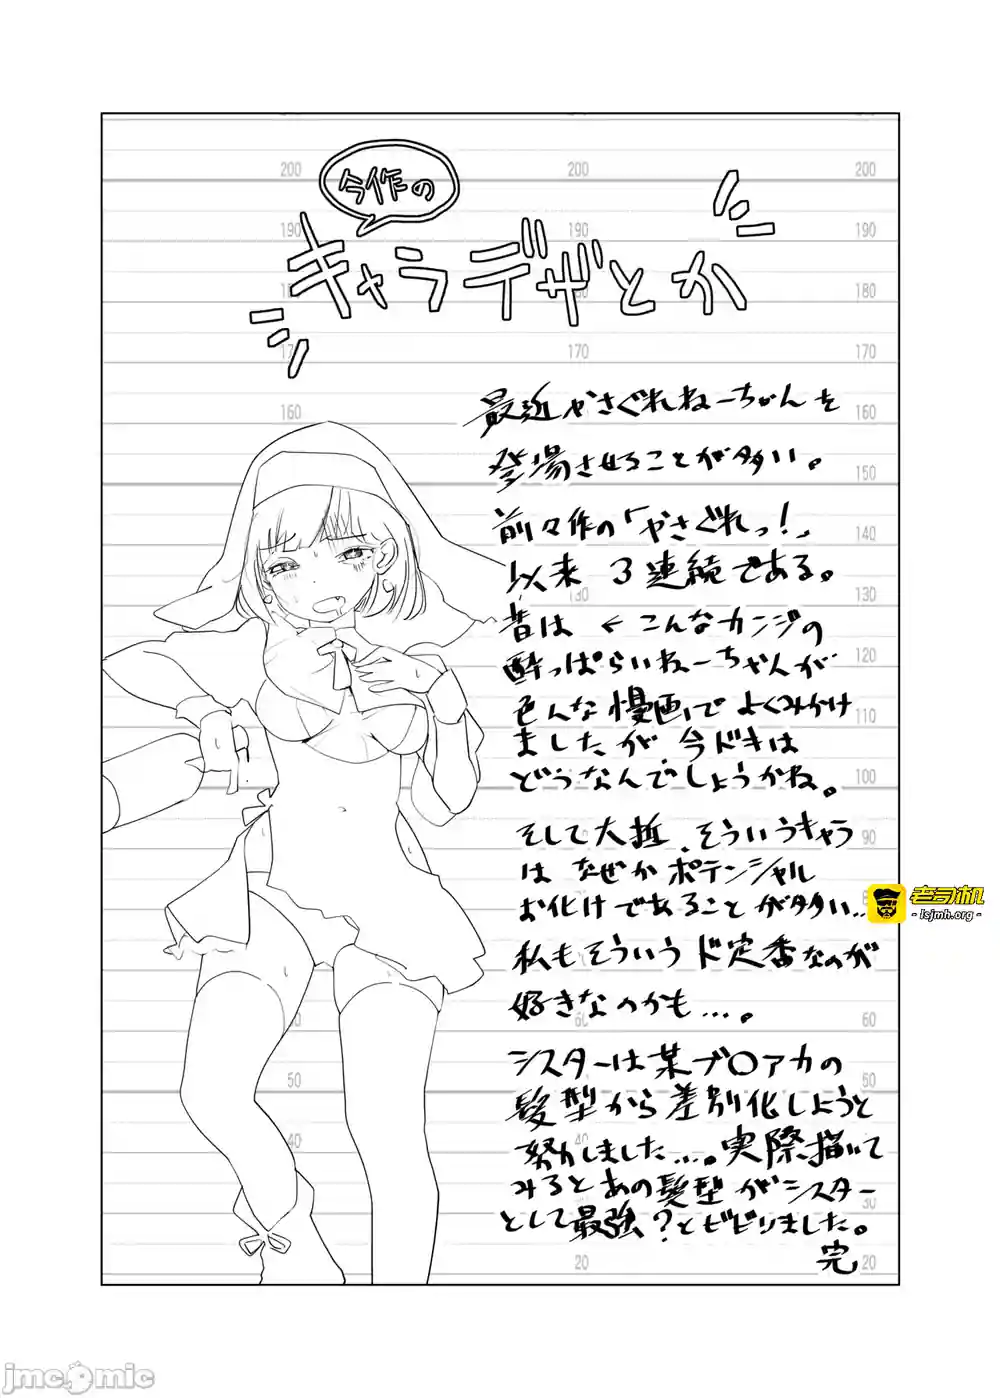 今作の
キャラデザとか
最近やさぐれねーちゃんを
登場させることが多い。
前々作の「やさぐれっ!」
以来 3連続である。
昔は ← こんなカンジの
酔っぱらいねーちゃんが
色んな漫画でよくみかけ
ましたが、今ドキは
どうなんでしょうかね。
そして大抵、そういうキャラ
は なぜか ポテンシャル
お化けであることが多い..
私もそういう ド定番なのが
好きなのかも....。
シスターは某ブ〇アカの
髪型から差別化しようと
努力しました....。実際描いて
みるとあの髪型がシスター
として最強?とビビりました。
完
200 200 200
190 190 190
180
170 170
160 160
150
140
130 130
120
110
100
90
60 60
50 50
40 40
30
20 20
老司机
- lsjmh.org -
jmcomic